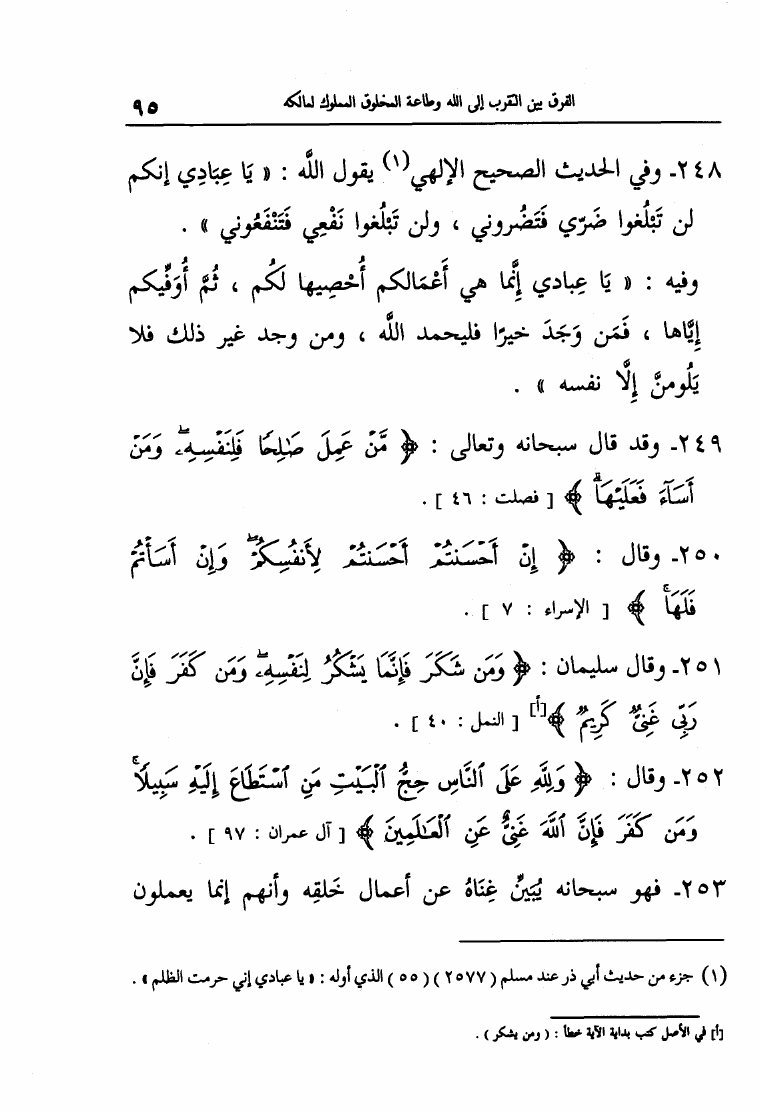 الفرق بين التقرب إلى الله وطاعة المخلوق المملوك لمالكه ٩٥
٢٤٨ـ وفي الحديث الصحيح الإلهي(١) يقول اللَّه : « يَا عِبَادِي إنكم
لن تَبْلُغوا ضَرّي فَتَضُروني ، ولن تَبْلُغوا نَفْعِي فَتَنْفَعُوني » .
وفيه : « يَا عِبادي إِنَّما هي أَعْمَالكم أُحْصِيها لكُم ، ثُمَّ أُوَفِّيكم
إِيَّاها ، فَمَن وَجَدَ خيرًا فليحمد اللَّه ، ومن وجد غير ذلك فلا
يَلُومنَّ إِلَّا نفسه » .
٢٤٩ـ وقد قال سبحانه وتعالى : ﴿ مَّنْ عَمِلَ صَٰلِحًا فَلِنَفْسِهِۦۖ وَمَنْ
أَسَآءَ فَعَلَيْهَاۗ ﴾ [ فصلت : ٤٦ ] .
٢٥٠ـ وقال : ﴿ إِنْ أَحْسَنتُمْ أَحْسَنتُمْ لِأَنفُسِكُمْۖ وَإِنْ أَسَأْتُمْ
فَلَهَاۚ ﴾ [ الإسراء : ٧ ] .
٢٥١ـ وقال سليمان : ﴿ وَمَن شَكَرَ فَإِنَّمَا يَشْكُرُ لِنَفْسِهِۦۖ وَمَن كَفَرَ فَإِنَّ
رَبِّي غَنِيٌّ كَرِيمٌ ﴾[أ] [ النمل : ٤٠ ] .
٢٥٢ـ وقال : ﴿ وَلِلَّهِ عَلَى ٱلنَّاسِ حِجُّ ٱلْبَيْتِ مَنِ ٱسْتَطَاعَ إِلَيْهِ سَبِيلًاۚ
وَمَن كَفَرَ فَإِنَّ ٱللَّهَ غَنِيٌّ عَنِ ٱلْعَٰلَمِينَ ﴾ [ آل عمران : ٩٧ ] .
٢٥٣ـ فهو سبحانه يُبَيِّنُ غِنَاهُ عن أعمال خَلقِه وأنهم إنما يعملون
(١) جزء من حديث أبي ذر عند مسلم ( ٢٥٧٧ ) ( ٥٥ ) الذي أوله : « يا عبادي إني حرمت الظلم » .
[أ] في الأصل كتب بداية الآية خطأ : ( ومن يشكر ) .